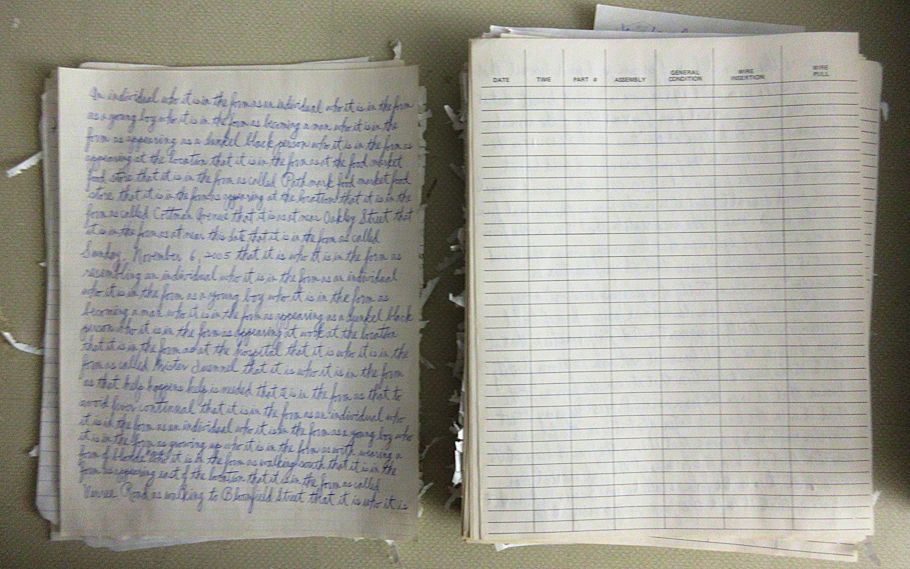 An individual who it is in the form as an individual who it is in the form
as a young boy who it is in the form as becoming a man who it is in the
form as appearing as a dunkel black person who it is in the form as
appearing at the location that it is in the form as at the food market
food store that it is in the form as called Pathmark food market food
store that it is in the form as appearing at the location that it is in the
form as called Cottman Avenue that it is as at near Oakley Street that
it is in the form as at near this date that it is in the form as called
Sunday, November 6, 2005 that it is who it is in the form as
resembling an individual who it is in the form as an individual
who it is in the form as a young boy who it is in the form as
becoming a man who it is in the form as appearing as a dunkel black
person who it is in the form as appearing at work at the location
that it is in the form as at the hospital that it is who it is in the
form as called Mister that it is who it is in the form
as that help happens help is needed that it is in the form as that to
avoid fever continual that it is in the form as an individual who
it is in the form as an individual who it is in the form as a young boy who
it is in the form as growing up who it is in the form as worth wearing a
form of blonde who it is in the form as walking south that it is in the
form as appearing east of the location that it is in the form as called
Verree Road as walking to Bloomfield Street that it is who it is
DATE TIME PART # ASSEMBLY GENERAL CONDITION WIRE INSERTION WIRE PULL